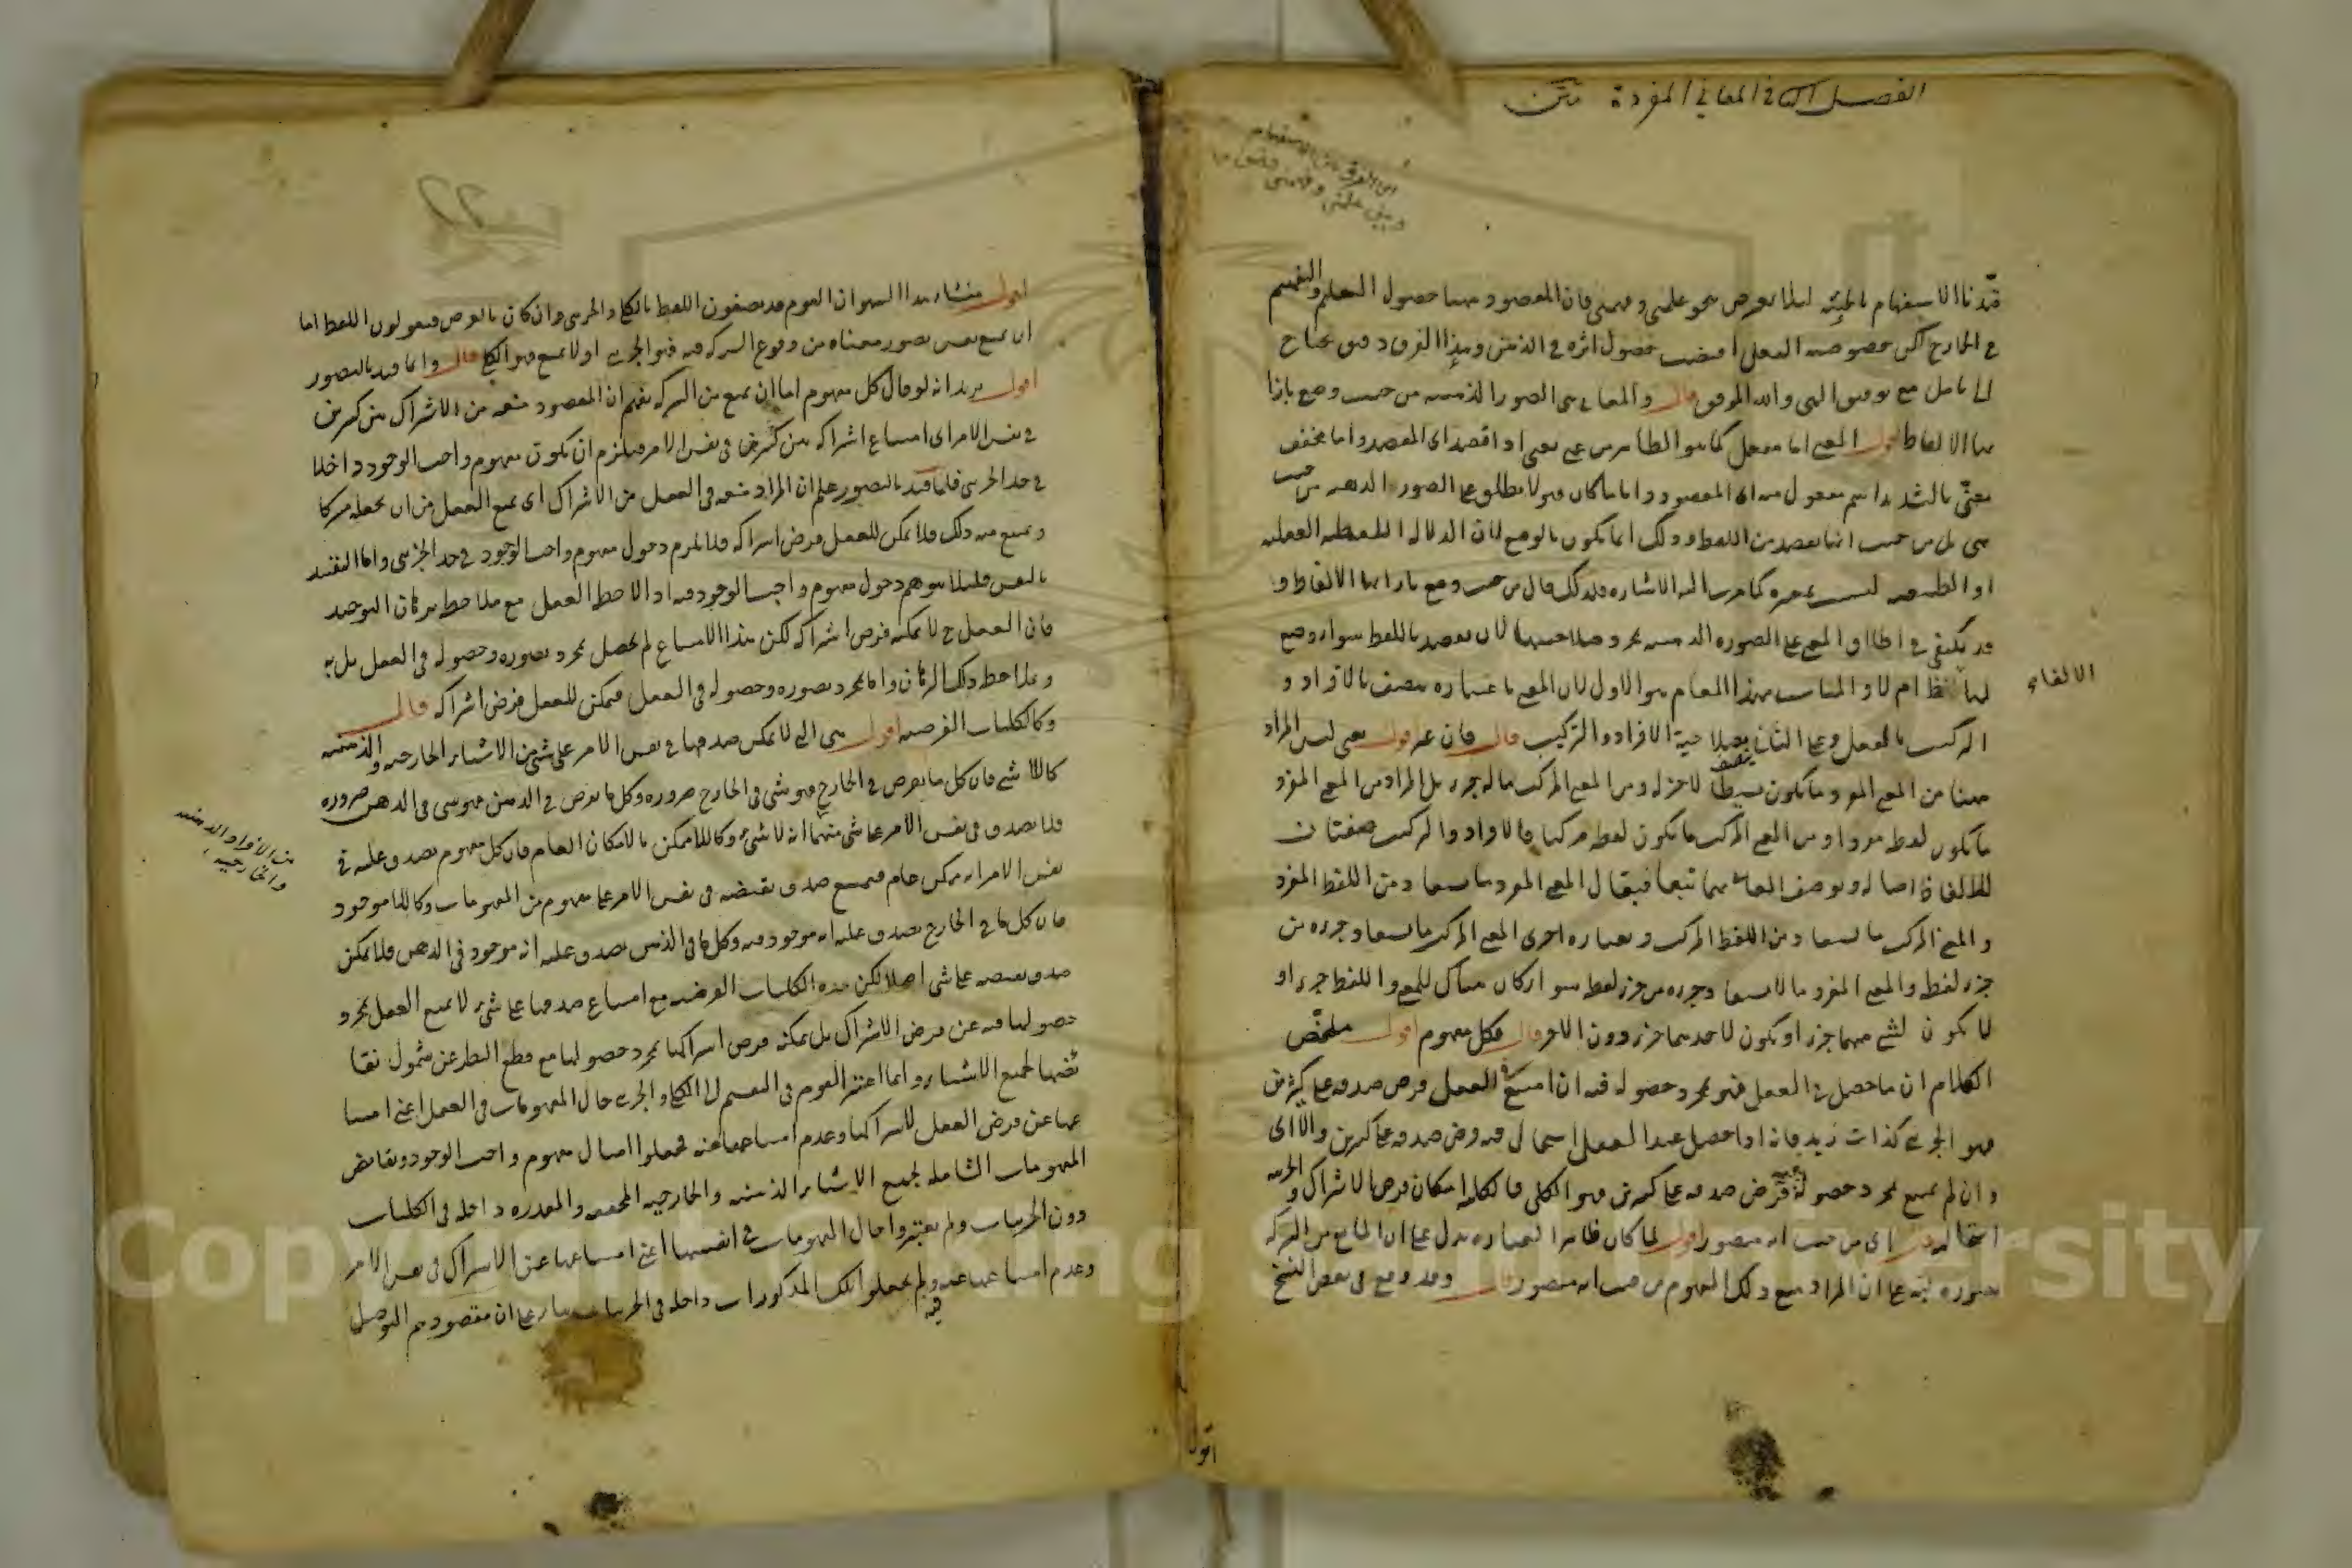 الفصل الثاني في المعاني المفردة متن
اي الفرق بين الاستفهام
وبين علمني وفهمني
قيدنا الاستفهام بالحيثية لئلا يعرض نحو علمني وفهمني فان المقصود منهما حصول التعليم والتفهيم
في الخارج لكن خصوصية الفعل اقتضت حصول اثره في الذهن وهذا الفرق دقيق يحتاج
الى تأمل مع توفيق الهي والله الموفق قال والمعاني هي الصور الذهنية من حيث وضع بازا
ئها الالفاظ اقول المعنى اما مفعل كما هو الظاهر من عنى يعني اذا قصد اى المقصد واما مخفف
معنيّ بالتشديد اسم مفعول منه اى المقصود وايا ما كان فهو لا يطلق على الصور الذهنية من حيث
هي بل من حيث انها تقصد من اللفظ وذلك انما يكون بالوضع لان الدلالة اللفظية العقلية
او الطبيعية ليست بمعتبرة كما مرت اليه الاشارة فلذلك قال من حيث وضع بازائها الالفاظ و
قد يكتفى في اطلاق المعنى على الصورة الذهنية بمجرد صلاحيتها لان تقصد باللفظ سواء وضع
لها لفظ ام لا والمناسب بهذا المقام هو الاول لان المعنى باعتباره يتصف بالافراد و
الالفاظ
التركيب بالفعل وعلى الثاني بصلاحية الافراد والتركيب قال فان عبر اقول يعني ليس المراد
ههنا من المعنى المفرد ما يكون بسيطا لا جزء له ومن المعنى المركب ما له جزء بل المراد من المعنى المفرد
ما يكون لفظه مفردا ومن المعنى المركب ما يكون لفظه مركبا فالافراد والتركيب صفتان
للالفاظ اصالة ويوصف المعاني بهما تبعا فيقال المعنى المفرد ما يستفاد من اللفظ المفرد
والمعنى المركب ما يستفاد من اللفظ المركب وبعبارة اخرى المعنى المركب ما يستفاد جزءه من
جزء لفظه والمعنى المفرد ما لا يستفاد جزءه من جزء لفظه سواء كان هناك للمعنى واللفظ جزء او
لا يكون لشئ منهما جزء او يكون لاحدهما جزء دون الاخر قال فكل مفهوم اقول ملخص
الكلام ان ما حصل في العقل فهو بمجرد حصوله فيه ان امتنع في العقل فرض صدقه على كثيرين
فهو الجزئى كذات زيد فانه اذا حصل عند العقل استحال فيه فرض صدقه على كثيرين والا اى
وان لم يمتنع بمجرد حصوله فيه فرض صدقه على كثيرين فهو الكلي فالكلية امكان فرض الاشتراك والجزئية
استحالته قال اى من حيث انه متصور اقول لما كان ظاهر العبارة يدل على ان المانع من الشركة
تصوره نبه على ان المراد منع ذلك المفهوم من حيث انه متصور قال وقد وقع في بعض النسخ
اقول
اقول منشاء هذا السهو ان القوم قد يصفون اللفظ بالكلي والجزئي وان كان بالعرض فيقولون اللفظ اما
ان يمنع نفس تصور معناه من وقوع الشركة فيه فهو الجزئي او لا يمنع فهو الكلي قال وانما قيد بالتصور
اقول يريد انه لو قال كل مفهوم اما ان يمنع من الشركة يفهم ان المقصود منعه من الاشتراك بين كثيرين
في نفس الامر اى امتناع اشتراكه بين كثيرين في نفس الامر فيلزم ان يكون مفهوم واجب الوجود داخلا
في حد الجزئي فلما قيد بالتصور علم ان المراد منعه في العقل من الاشتراك اى يمنع العقل من ان يجعله مشتركا
ويمنع منه ذلك فلا يمكن للعقل فرض اشتراكه فلا يلزم دخول مفهوم واجب الوجود في حد الجزئي واما التقييد
بالنفس فلئلا يتوهم دخول مفهوم واجب الوجود فيه اذا لاحظ العقل مع ملاحظة برهان التوحيد
فان العقل ح لا يمكنه فرض اشتراكه لكن هذا الامتناع لم يحصل بمجرد تصوره وحصوله في العقل بل به
وبملاحظة ذلك البرهان واما بمجرد تصوره وحصوله في العقل فيمكن للعقل فرض اشتراكه قال
وكالكليات الفرضية اقول هي التي لا يمكن صدقها في نفس الامر على شئ من الاشياء الخارجية والذهنية
كاللا شئ فان كل ما يفرض في الخارج فهو شئ في الخارج ضرورة وكل ما يفرض في الذهن فهو شئ في الذهن ضرورة
فلا يصدق في نفس الامر على شئ منهما انه لا شئ وكاللاممكن بالامكان العام فان كل مفهوم يصدق عليه في
من الافراد الذهنية
والخارجية
نفس الامر انه ممكن عام فيمتنع صدق نقيضه في نفس الامر على مفهوم من المفهومات وكاللاموجود
فان كل ما في الخارج يصدق عليه انه موجود فيه وكل ما في الذهن يصدق عليه انه موجود في الذهن فلا يمكن
صدق نقيضه على شئ اصلا لكن هذه الكليات الفرضية مع امتناع صدقها على شئ لا يمنع العقل بمجرد
حصولها فيه عن فرض الاشتراك بل يمكنه فرض اشتراكها بمجرد حصولها مع قطع النظر عن شمول نقا
ئضها لجميع الاشياء وانما اعتبر القوم في التقسيم الى الكلي والجزئي حال المفهومات في العقل اعني امتنا
عها عن فرض العقل لاشتراكها وعدم امتناعها عنه فجعلوا امثال مفهوم واجب الوجود ونقائض
المفهومات الشاملة لجميع الاشياء الذهنية والخارجية المحققة والمقدرة داخلة في الكليات
دون الجزئيات ولم يعتبروا حال المفهومات في انفسها اعني امتناعها عن الاشتراك في نفس الامر
وعدم امتناعها عنه فيه ولم يجعلوا تلك المذكورات داخلة في الجزئيات بناء على ان مقصودهم التوصل
Copyright © King Saud University